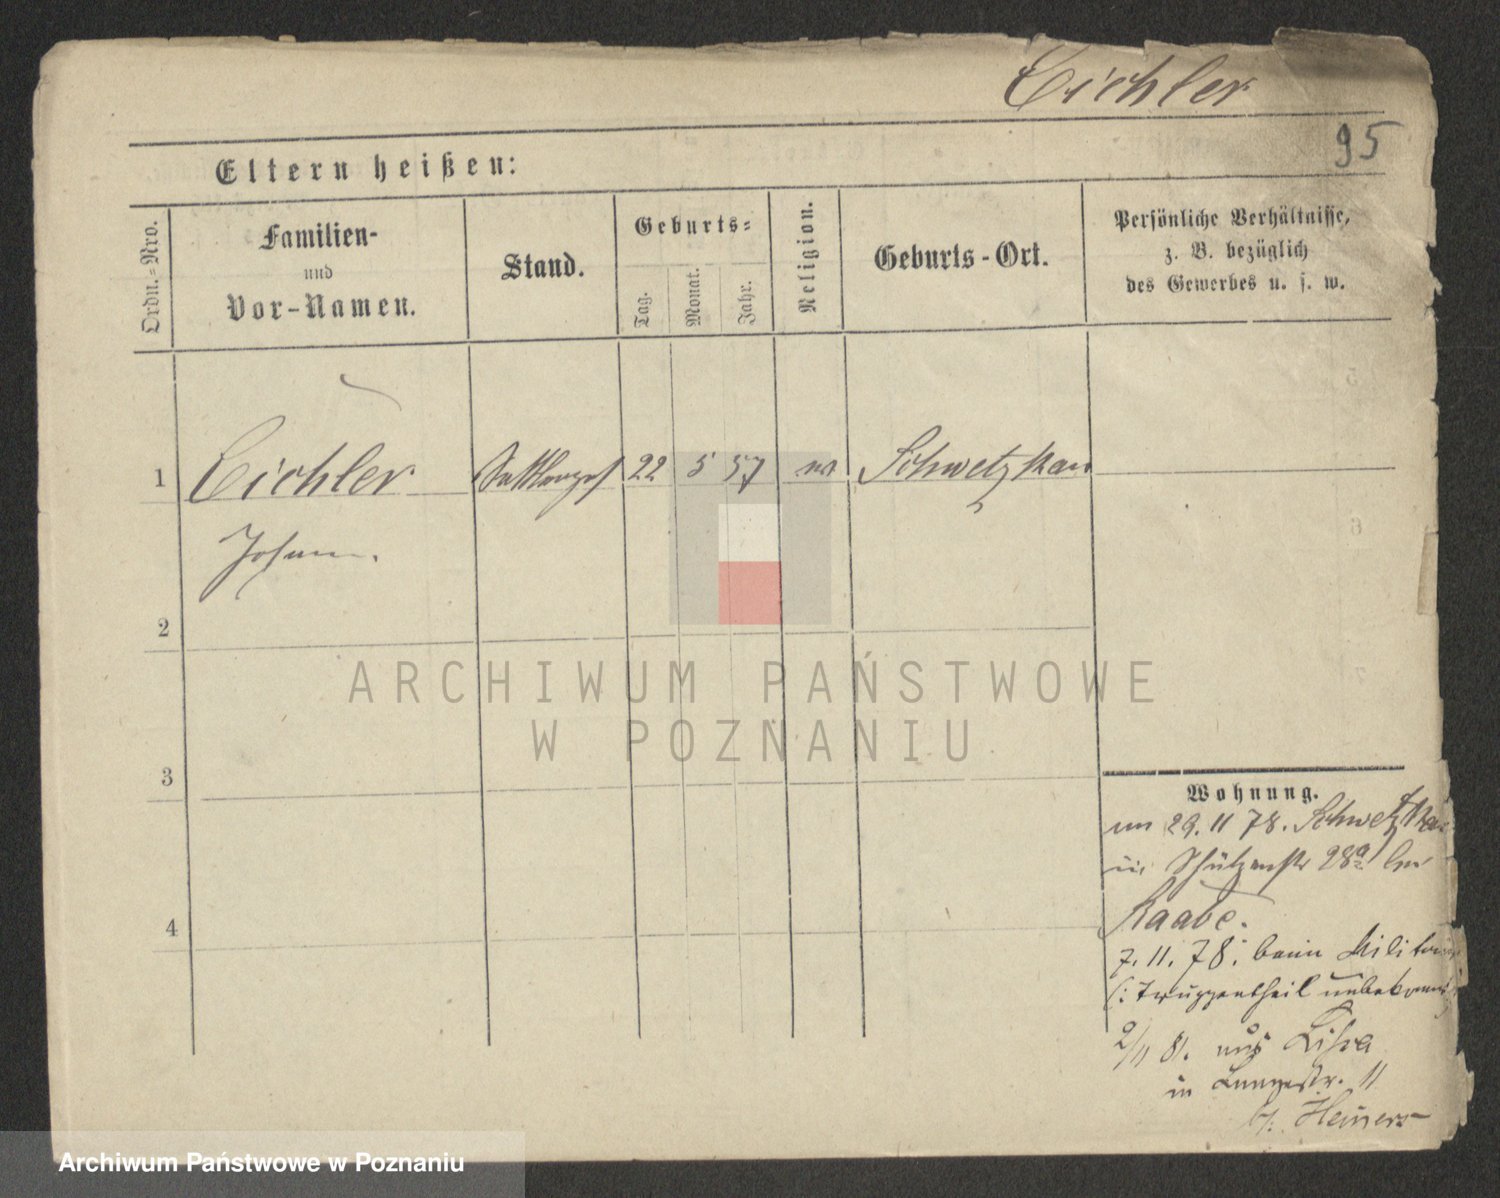 Eichler
95
Eltern heißen:
Ordn.=Nro.
Familien-
und
Vor-Namen.
Stand.
Geburts=
Tag.
Monat.
Jahr.
Religion.
Geburts-Ort.
Persönliche Verhältnisse,
z. B. bezüglich
des Gewerbes u. s. w.
1
Eichler
Sattlerges
22
5
57
Schwetzkau
Johann.
2
3
4
ARCHIWUM PAŃSTWOWE
W POZNANIU
Wohnung.
29. 11 78. Schwetzkau
in Schützenstr 28a bei
Raabe.
7. 11. 78. beim Militair
(: Truppentheil unbekannt
2/11 81. aus Lissa
in Langestr. 11
b/: Heiners
Archiwum Państwowe w Poznaniu